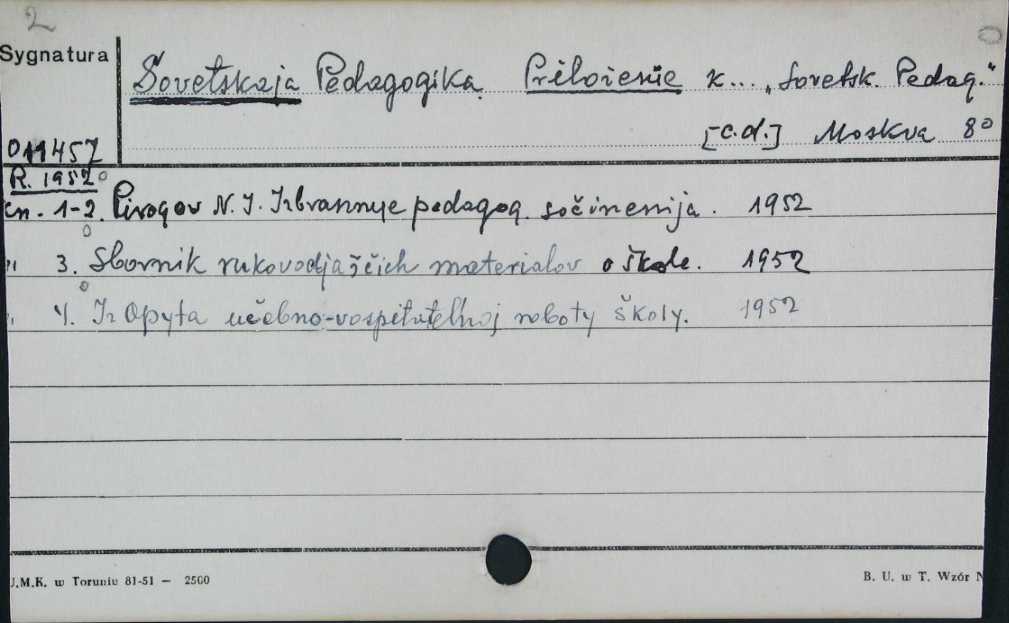 2
Sygnatura
Sovetskaja Pedagogika. Priloženie k... „Sovetsk. Pedag."
[c.d.] Moskva 8°
011457
R. 1952
cn. 1-2. Pirogov N. I. Izbrannye pedagog. sočinenija. 1952
" 3. Sbornik rukovodjaščich materialov o škole. 1952
" 4. Iz Opyta učebno-vospitatelnoj raboty školy. 1952
U.M.K. w Toruniu 81-51 — 2500
B. U. w T. Wzór N